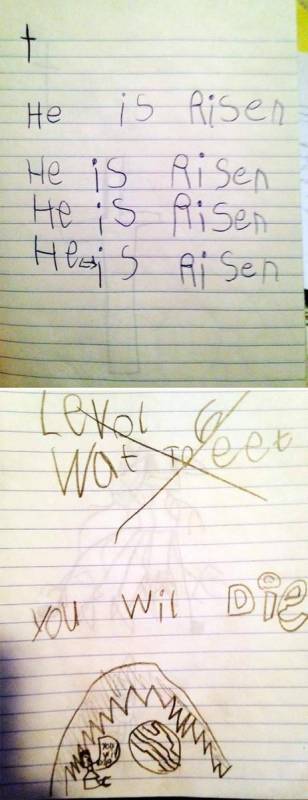 He is Risen
He is Risen
He is Risen
He is Risen
Level 6
Wat to eet
you wil Die